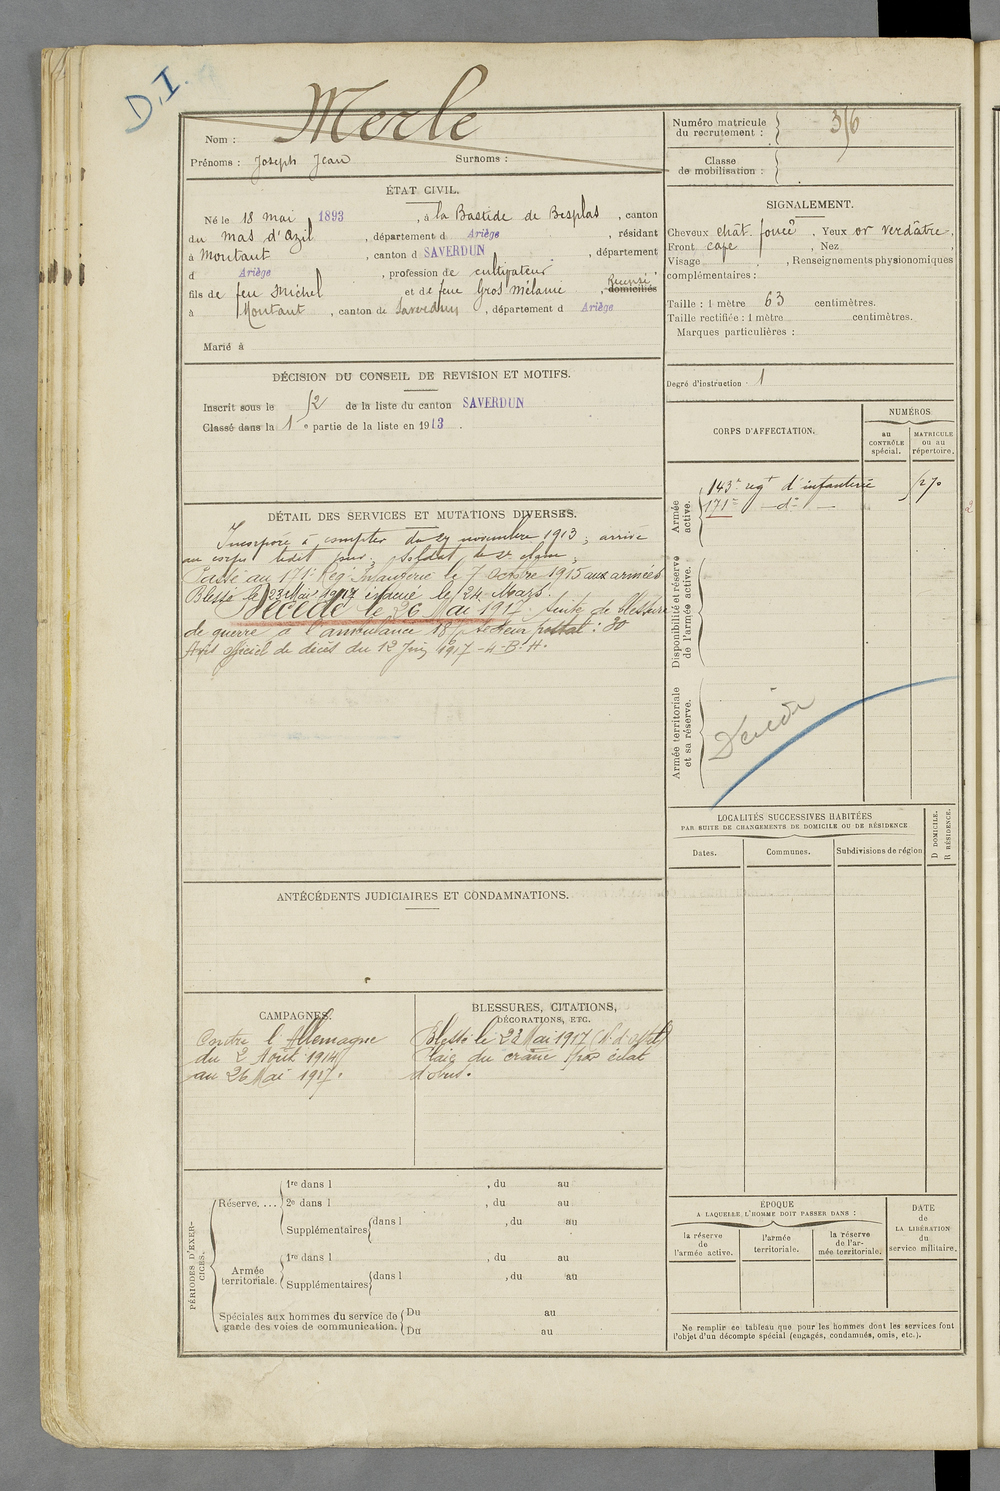 D.I.
Nom : Merle
Prénoms : Joseph Jean Surnoms :
ÉTAT CIVIL.
Né le 18 mai 1893, à la Bastide de Besplas, canton
du Mas d'Azil, département d Ariège, résidant
à Montaut, canton d SAVERDUN, département
d Ariège, profession de cultivateur
fils de feu Michel et de feue Gros Mélanie, domiciliés Recensé
à Montaut, canton de Saverdun, département d Ariège
Marié à
DÉCISION DU CONSEIL DE REVISION ET MOTIFS.
Inscrit sous le 52 de la liste du canton SAVERDUN
Classé dans la 1e partie de la liste en 1913.
DÉTAIL DES SERVICES ET MUTATIONS DIVERSES.
Incorporé à compter du 27 novembre 1913, arrivé
au corps ledit jour, soldat de 2e classe,
Passé au 171e Rég. Infanterie le 7 Octobre 1915 aux armées
Blessé le 23 Mai 1917 le 24 Mars.
Décédé le 26 Mai 1917. Suite de blessure
de guerre à l'ambulance secteur postal : 80
Avis officiel de décès du 12 Juin 1917
ANTÉCÉDENTS JUDICIAIRES ET CONDAMNATIONS.
CAMPAGNES.
Contre l'Allemagne
du 2 Août 1914
au 26 Mai 1917.
BLESSURES, CITATIONS,
DÉCORATIONS, ETC.
Blessé le 23 Mai 1917
Plaie du crâne par éclat
d'obus.
PÉRIODES D'EXER-
CICES.
Réserve....
1re dans l , du au
2e dans l , du au
Supplémentaires dans l , du au
Armée
territoriale.
1re dans l , du au
Supplémentaires dans l , du au
Spéciales aux hommes du service de
garde des voies de communication.
Du au
Du au
Numéro matricule
du recrutement : 316
Classe
de mobilisation :
SIGNALEMENT.
Cheveux chât. foncé, Yeux or verdâtre,
Front cape , Nez ,
Visage , Renseignements physionomiques
complémentaires :
Taille : 1 mètre 63 centimètres.
Taille rectifiée : 1 mètre centimètres.
Marques particulières :
Degré d'instruction : 1
CORPS D'AFFECTATION.
NUMÉROS
au
CONTRÔLE
spécial.
MATRICULE
ou au
répertoire.
Armée
active.
143e regt d'infanterie
171e — de —
Disponibilité et réserve
de l'armée active.
Armée territoriale
et sa réserve.
Décédé
LOCALITÉS SUCCESSIVES HABITÉES
PAR SUITE DE CHANGEMENTS DE DOMICILE OU DE RÉSIDENCE
D DOMICILE.
R RÉSIDENCE.
Dates. Communes. Subdivisions de région
ÉPOQUE
A LAQUELLE L'HOMME DOIT PASSER DANS :
la réserve
de
l'armée active.
l'armée
territoriale.
la réserve
de l'ar-
mée territoriale.
DATE
de
LA LIBÉRATION
du
service militaire.
Ne remplir ce tableau que pour les hommes dont les services font
l'objet d'un décompte spécial (engagés, condamnés, omis, etc.).